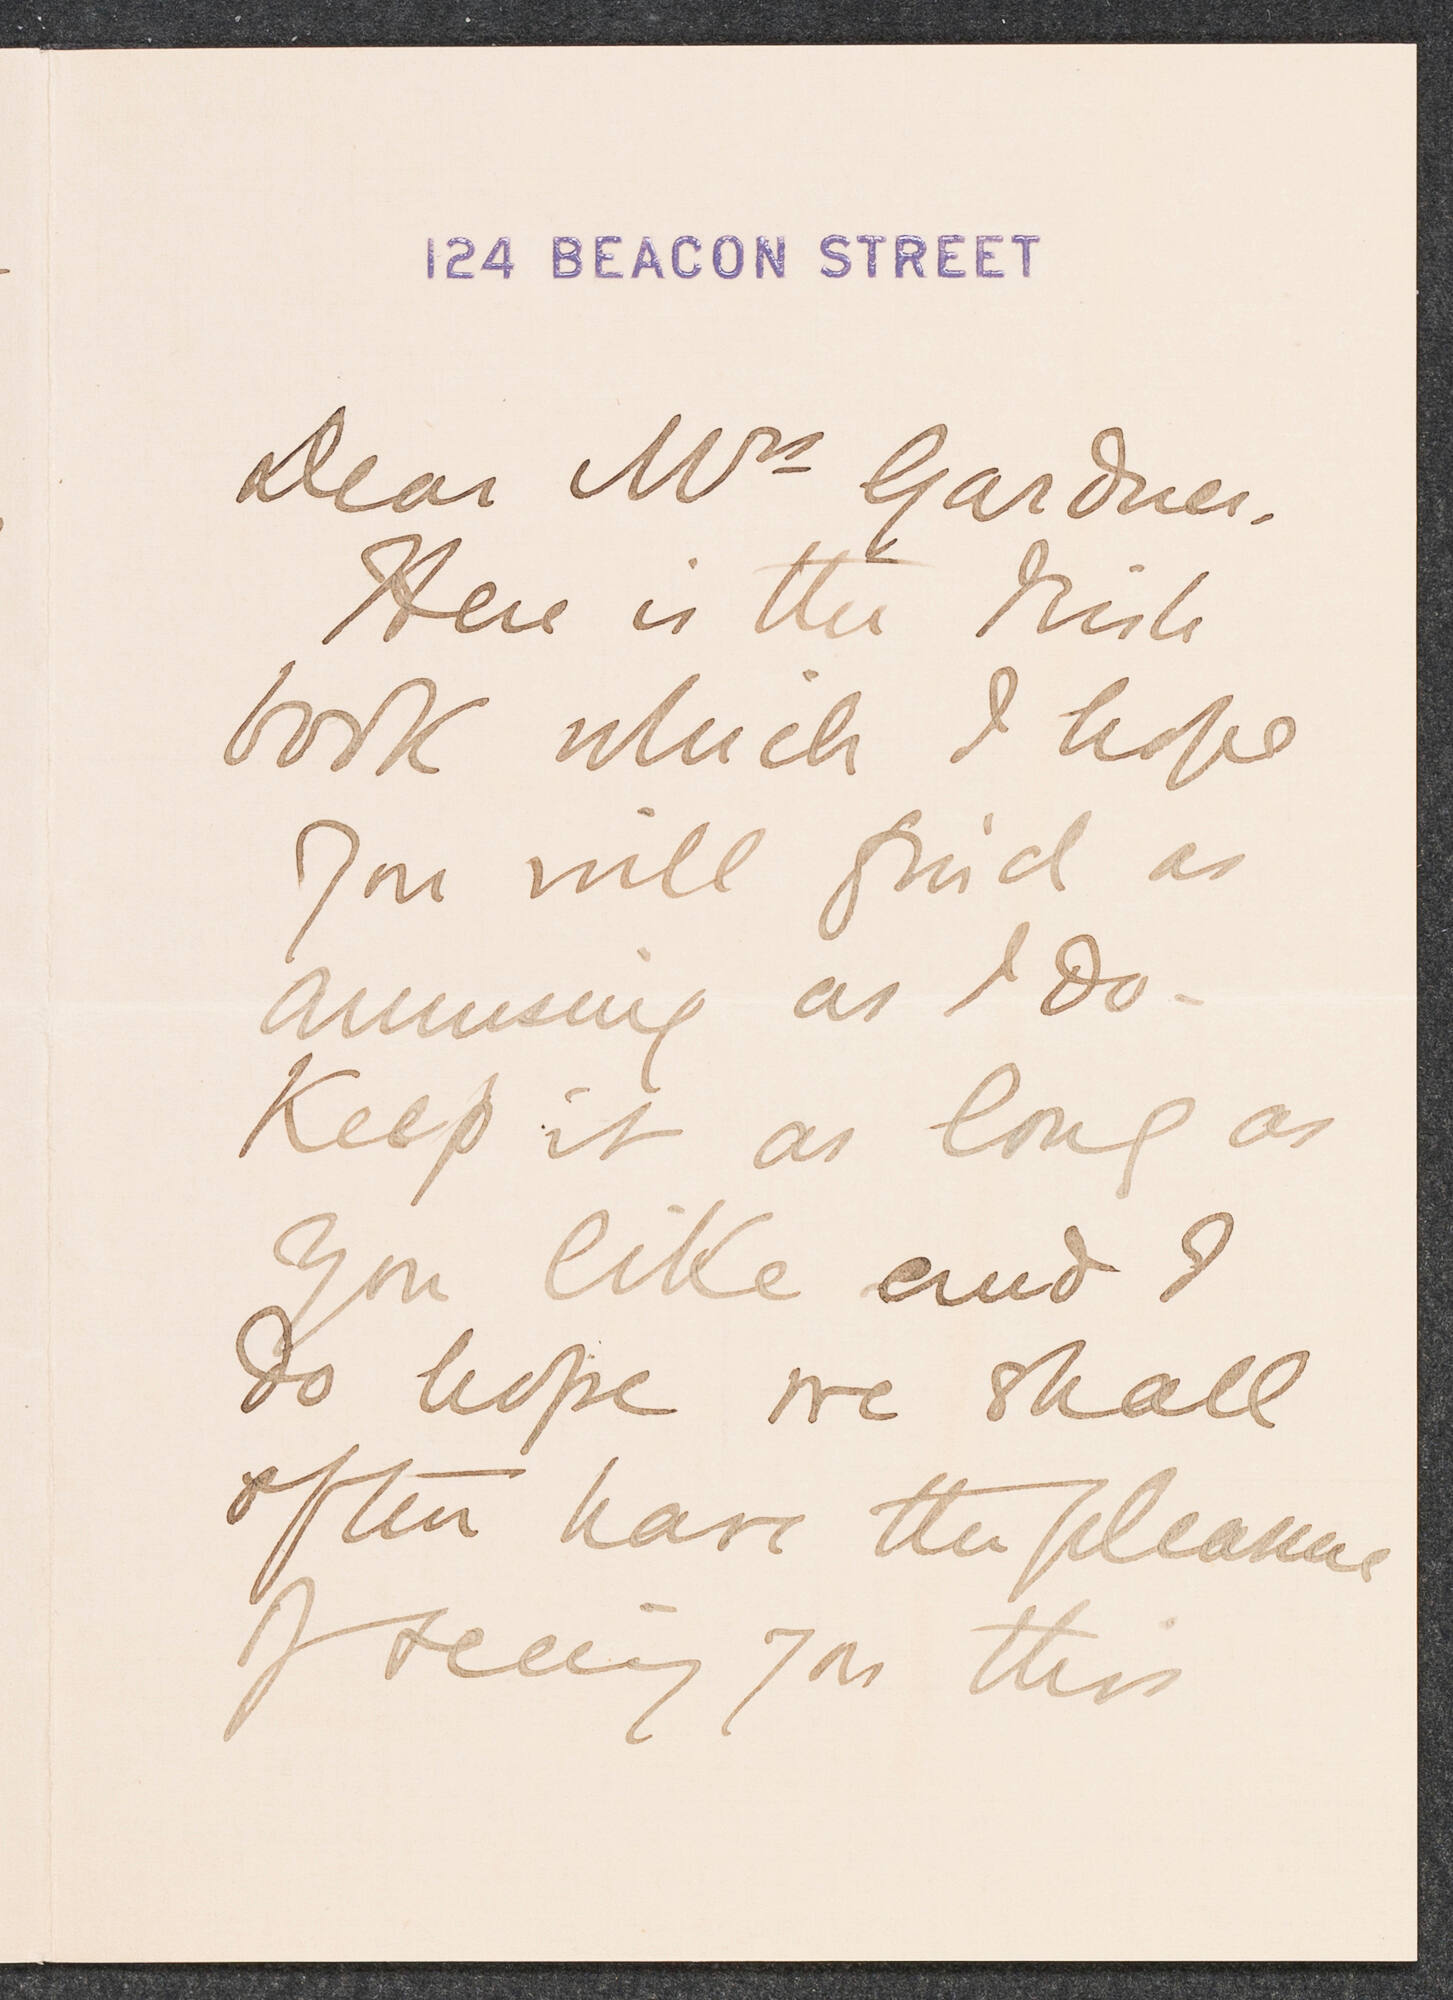 124 BEACON STREET
Dear Mrs Gardner.
Here is the Irish
book which I hope
you will find as
amusing as I do -
Keep it as long as
you like and I
do hope we shall
often have the pleasure
of seeing you this